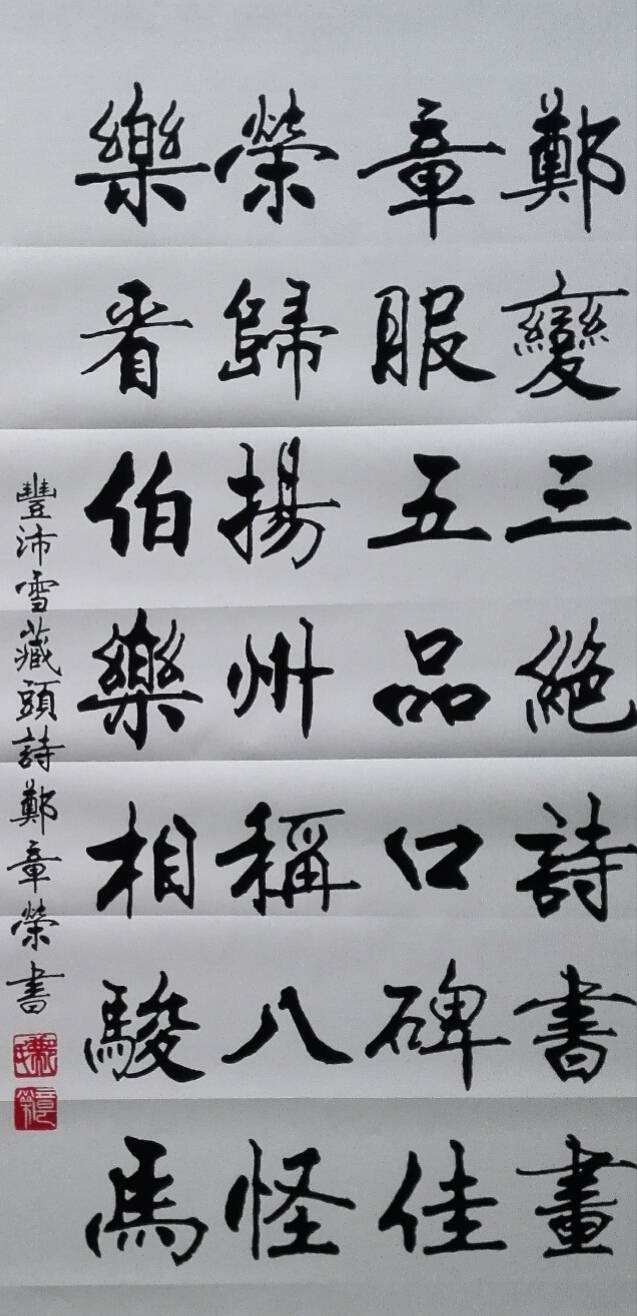 鄭變三絕詩書畫
章服五品口碑佳
榮歸揚州稱八怪
樂看伯樂相駿馬
豐沛雪藏頭詩鄭章榮書